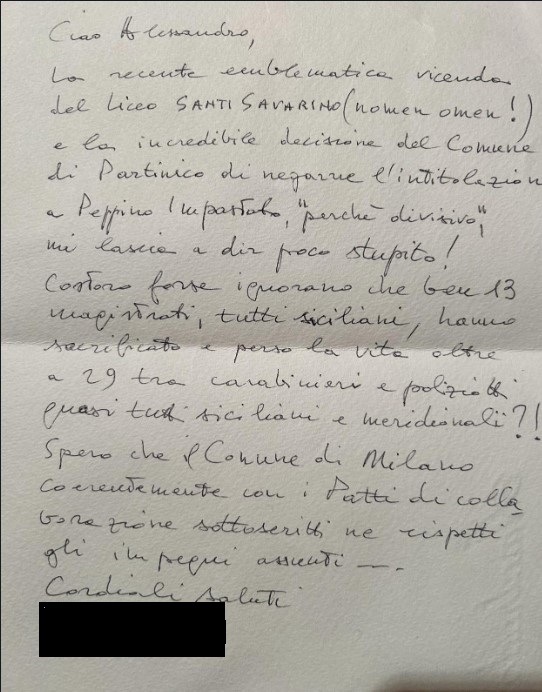 Ciao Alessandro,
La recente emblematica vicenda
del Liceo SANTI SAVARINO (nomen omen!)
e la incredibile decisione del Comune
di Partinico di negarne l'intitolazion
a Peppino Impastato, "perchè divisivo",
mi lascia a dir poco stupito!
Costoro forse ignorano che ben 13
magistrati, tutti siciliani, hanno
sacrificato e perso la vita oltre
a 29 tra carabinieri e poliziotti
quasi tutti siciliani e meridionali?!
Spero che il Comune di Milano
coerentemente con i Patti di colla
borazione sottoscritti ne rispetti
gli impegni assunti —.
Cordiali saluti